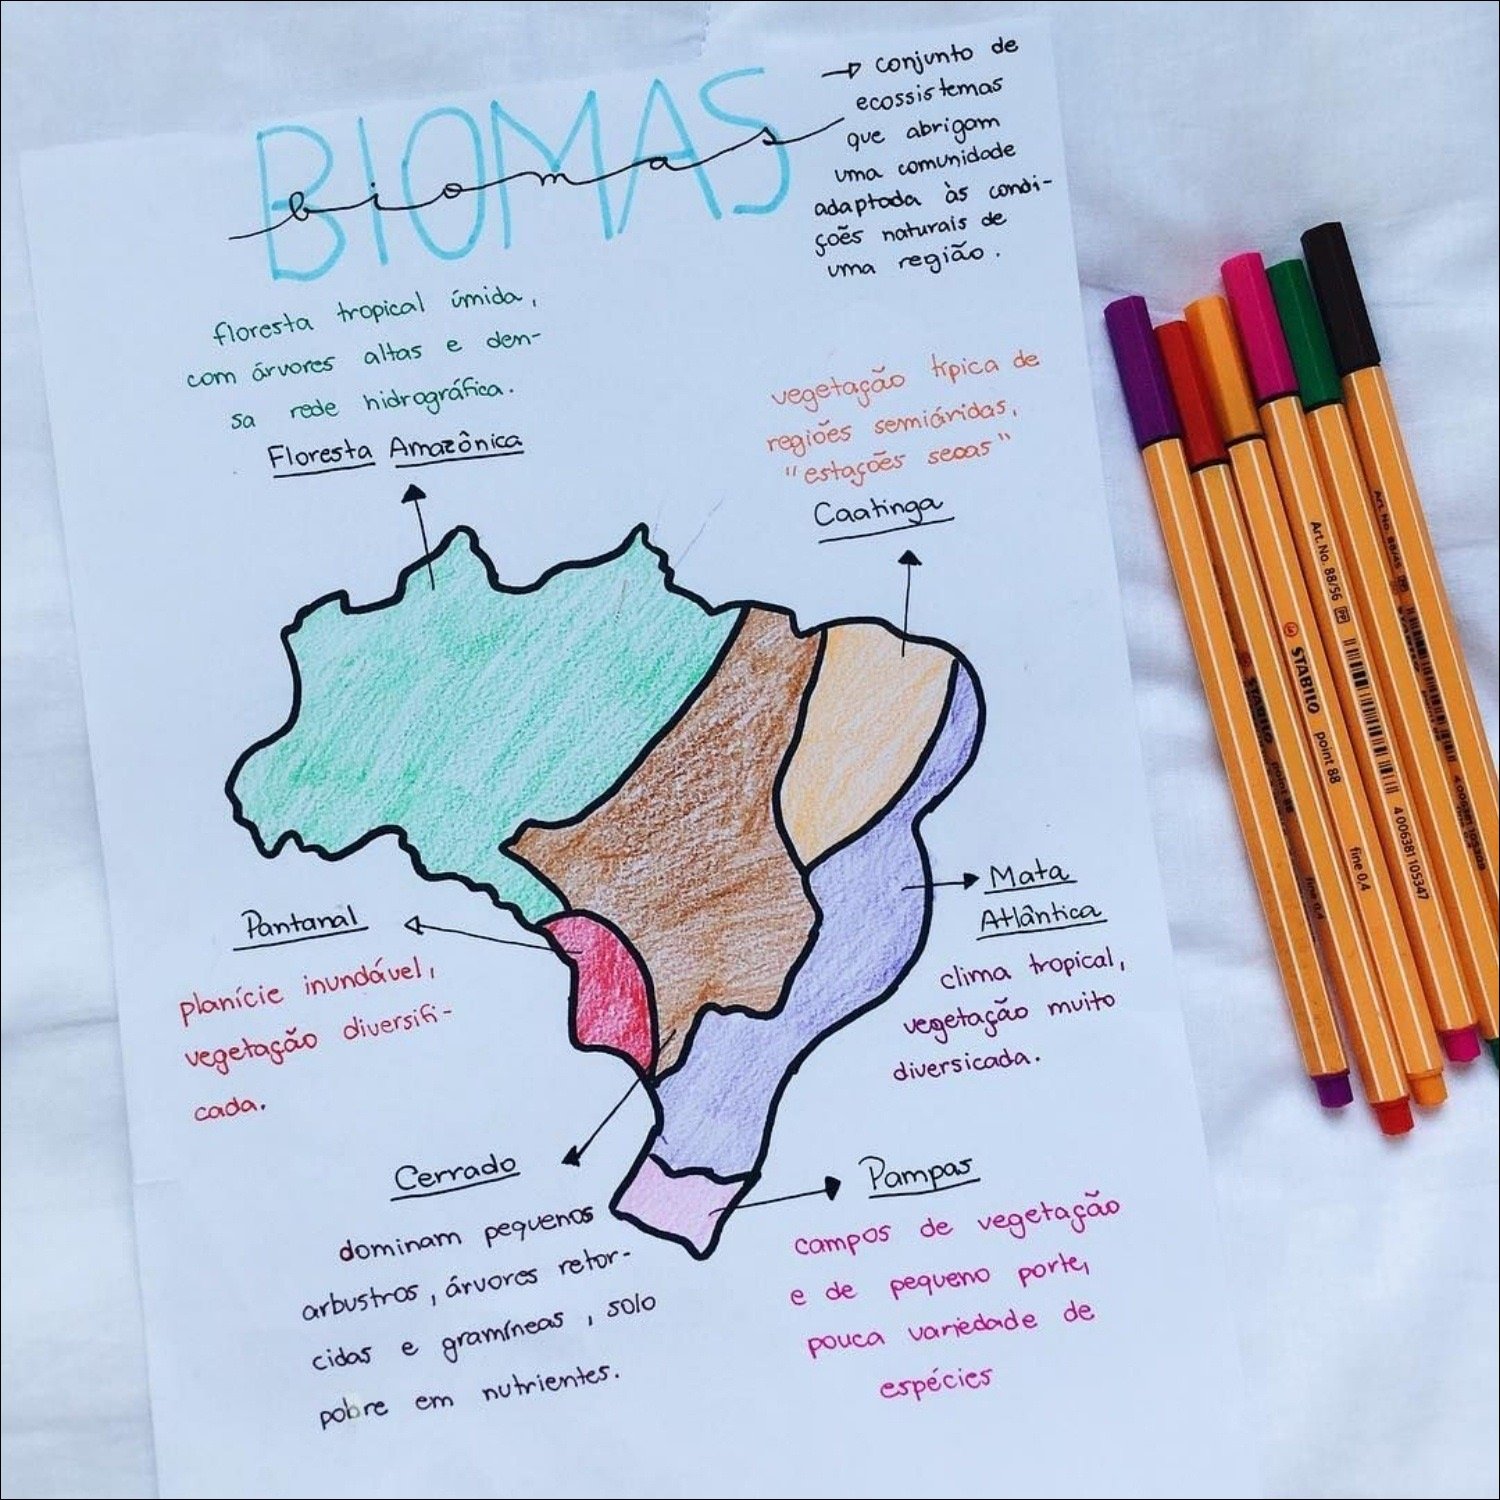 BIOMAS
biomas
→ conjunto de
ecossistemas
que abrigam
uma comunidade
adaptada às condi-
ções naturais de
uma região.
floresta tropical úmida,
com árvores altas e den-
sa rede hidrográfica.
Floresta Amazônica
vegetação típica de
regiões semiáridas,
"estações secas"
Caatinga
Mata
Atlântica
clima tropical,
vegetação muito
diversicada.
Pantanal
planície inundável,
vegetação diversifi-
cada.
Cerrado
dominam pequenos
arbustros, árvores retor-
cidas e gramíneas, solo
pobre em nutrientes.
Pampas
campos de vegetação
e de pequeno porte,
pouca variedade de
espécies
STABILO point 88 fine 0,4
Art. No. 88/56 4 006381 105347
STABILO point 88 fine 0,4